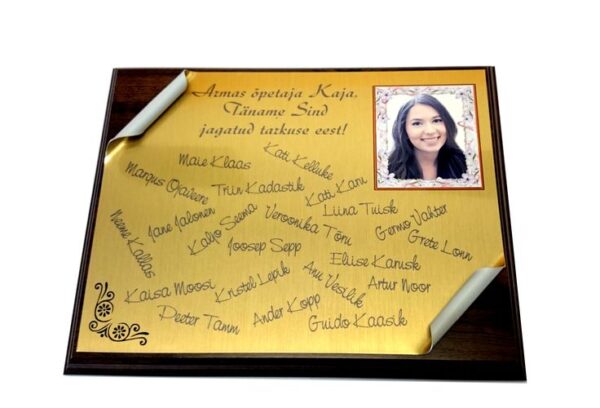 Armas õpetaja Kaja,
Täname Sind
jagatud tarkuse eest!
Kati Kelluke
Maie Klaas
Margus Ojaveere
Triin Kadastik
Kati Karu
Liina Tuisk
Neeme Kallas
Jane Jalonen
Kaljo Seema
Veroonika Tõru
Germo Vahter
Grete Lonn
Joosep Sepp
Eliise Karusk
Kaisa Moosi
Kristel Lepik
Anu Vesilik
Artur Noor
Peeter Tamm
Ander Kopp
Guido Kaasik